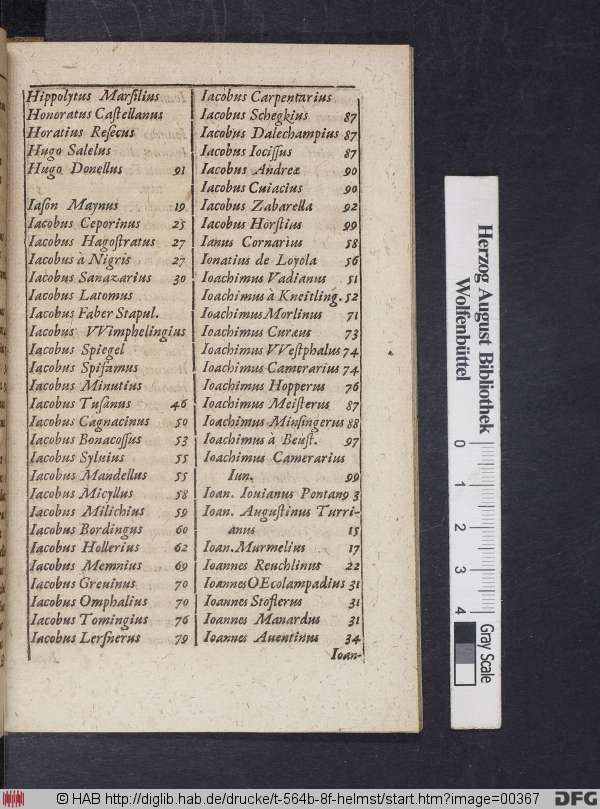 Hippolytus Marsilius
Honoratus Castellanus
Horatius Resecus
Hugo Salelus
Hugo Donellus 91
Iason Maynus 19
Iacobus Ceporinus 25
Iacobus Hagostratus 27
Iacobus à Nigris 27
Iacobus Sanazarius 30
Iacobus Latomus
Iacobus Faber Stapul.
Iacobus VVimphelingius
Iacobus Spiegel
Iacobus Spifamus
Iacobus Minutius
Iacobus Tusanus 46
Iacobus Cagnacinus 50
Iacobus Bonacossus 53
Iacobus Syluius 55
Iacobus Mandellus 55
Iacobus Micyllus 58
Iacobus Milichius 59
Iacobus Bordingus 60
Iacobus Hollerius 62
Iacobus Memnius 69
Iacobus Greuinus 70
Iacobus Omphalius 70
Iacobus Tomingius 76
Iacobus Lersnerus 79
Iacobus Carpentarius
Iacobus Schegkius 87
Iacobus Dalechampius 87
Iacobus Iocissus 87
Iacobus Andreæ 90
Iacobus Cuiacius 90
Iacobus Zabarella 92
Iacobus Hörstius 99
Ianus Cornarius 58
Ionatius de Loyola 56
Ioachimus Vadianus 51
Ioachimus à Kneitling. 52
Ioachimus Morlinus 71
Ioachimus Curæus 73
Ioachimus VVestphalus 74
Ioachimus Camerarius 74
Ioachimus Hopperus 76
Ioachimus Meisterus 87
Ioachimus Minsingerus 88
Ioachimus à Beust. 97
Ioachimus Camerarius
Iun. 99
Ioan. Iouianus Pontan9 3
Ioan. Augustinus Turri-
anus 15
Ioan. Murmelius 17
Ioannes Reuchlinus 22
Ioannes OEcolampadius 31
Ioannes Stoflerus 31
Ioannes Manardus 31
Ioannes Auentinus 34
Ioan-
Herzog August Bibliothek
Wolfenbüttel
0 1 2 3 4
Gray Scale
© HAB http://diglib.hab.de/drucke/t-564b-8f-helmst/start.htm?image=00367
DFG